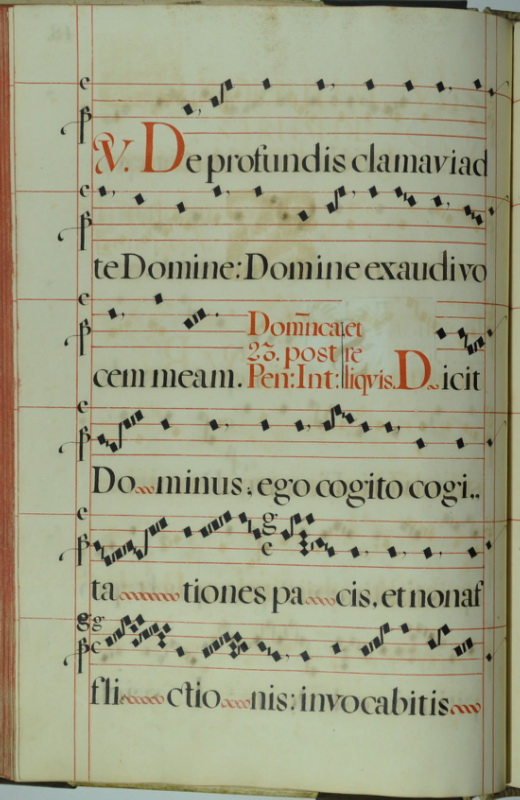 ℣. De profundis clamavi ad
te Domine: Domine exaudi vo
cem meam. Dom̃nca: et
23. post re
Pen: Int: liqvis. Dicit
Dominus: ego cogito cogi..
tationes pacis, et non af
flictionis: invocabitis